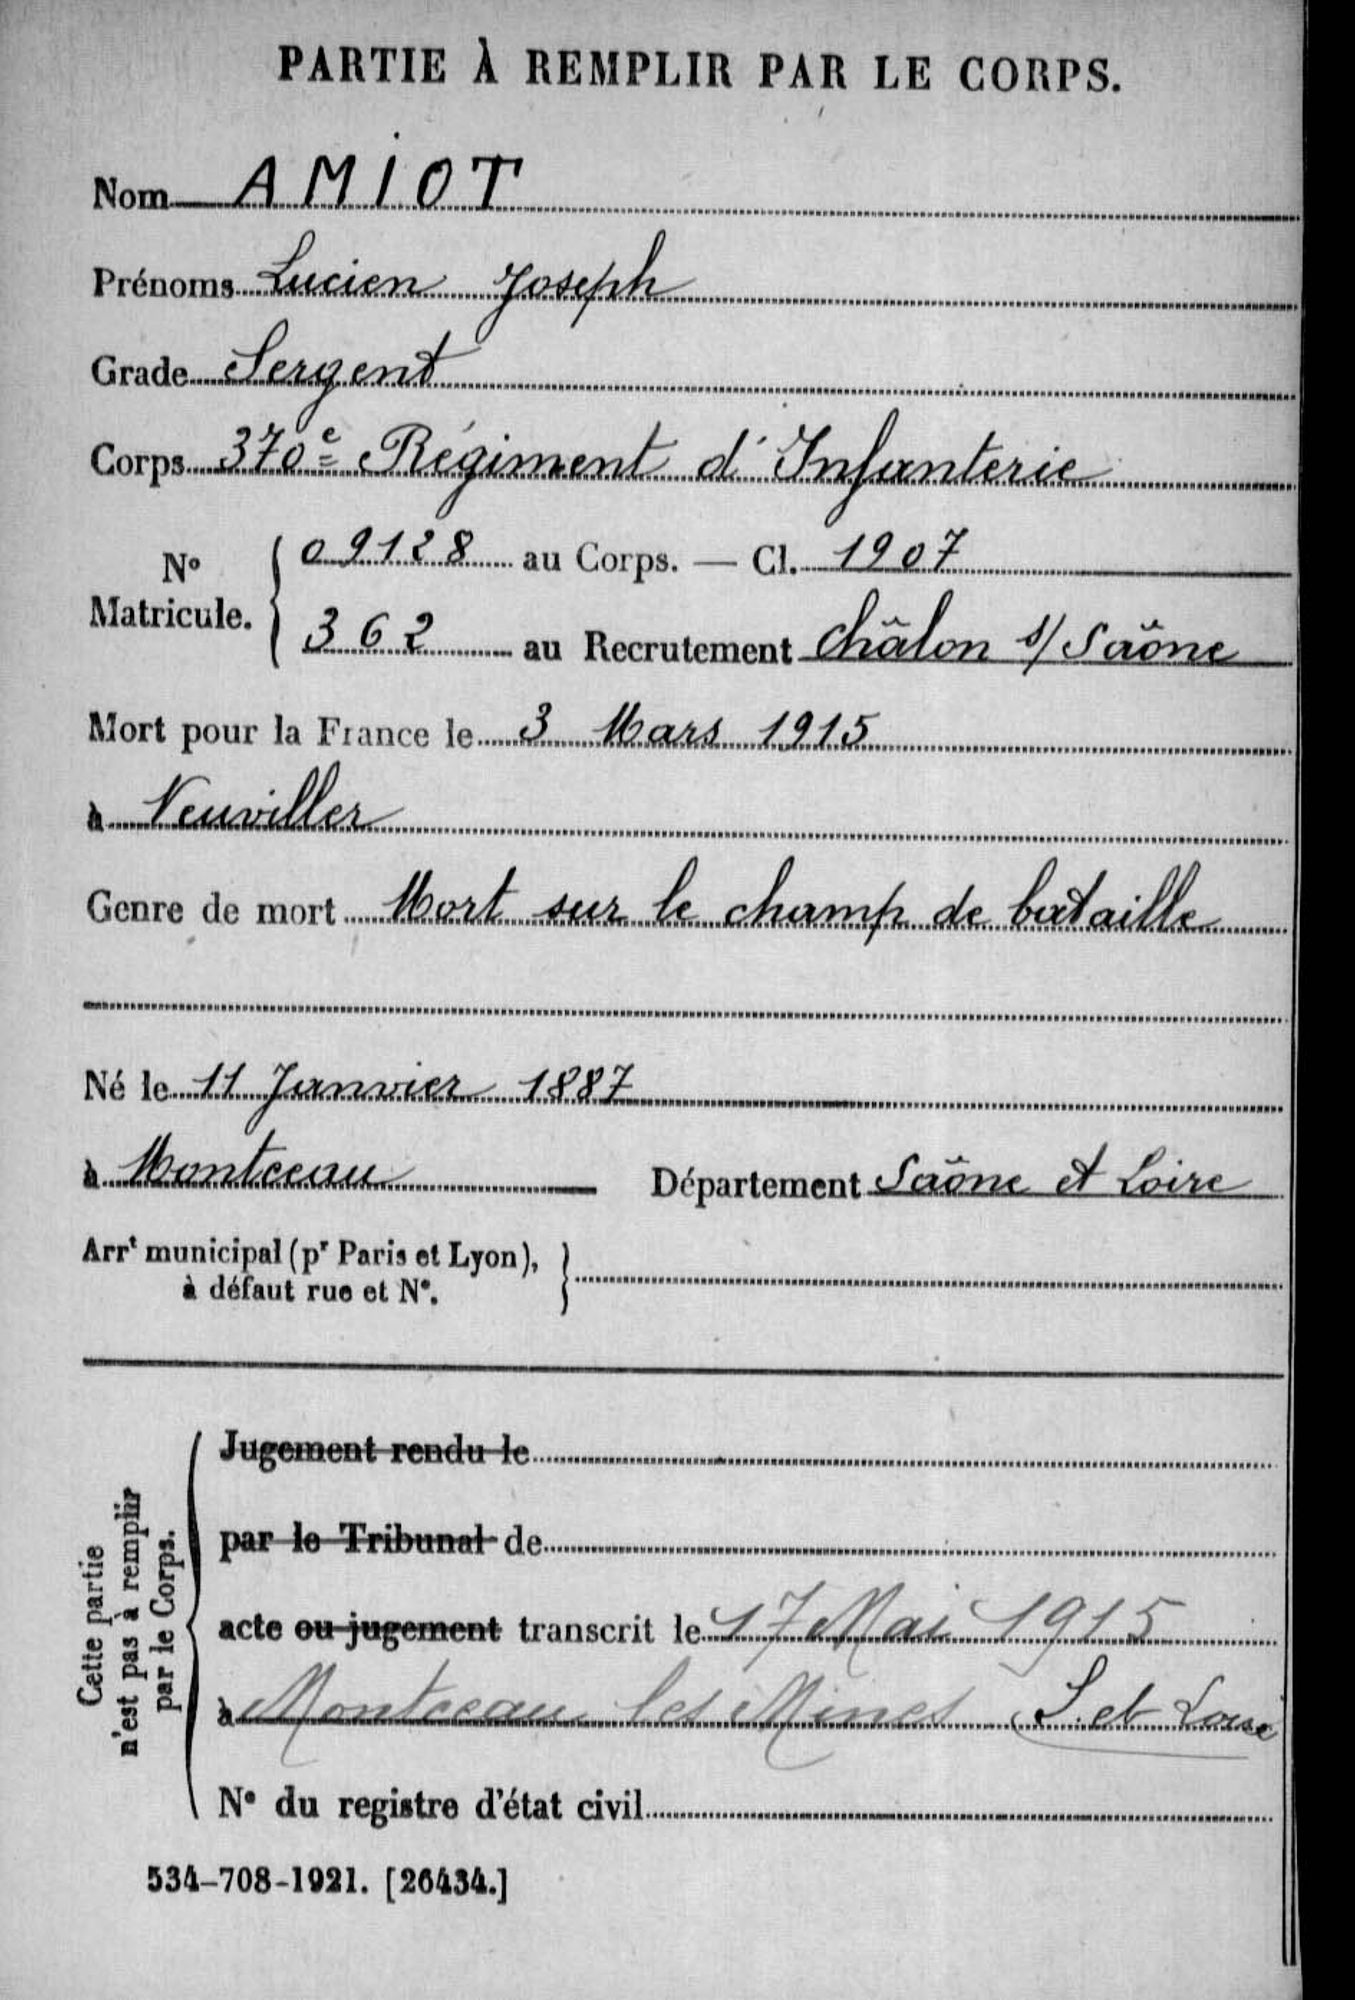 PARTIE À REMPLIR PAR LE CORPS.
Nom AMIOT
Prénoms Lucien Joseph
Grade Sergent
Corps 370e Régiment d'Infanterie
No Matricule. { 09128 au Corps. — Cl. 1907
362 au Recrutement Châlon s/ Saône
Mort pour la France le 3 Mars 1915
à Neuviller
Genre de mort Mort sur le champ de bataille
Né le 11 Janvier 1887
à Montceau Département Saône et Loire
Arrt municipal (pr Paris et Lyon),
à défaut rue et No.
Cette partie
n'est pas à remplir
par le Corps.
Jugement rendu le
par le Tribunal de
acte ou jugement transcrit le 17 Mai 1915
à Montceau les Mines (S. et Loire
No du registre d'état civil
534-708-1921. [26434.]